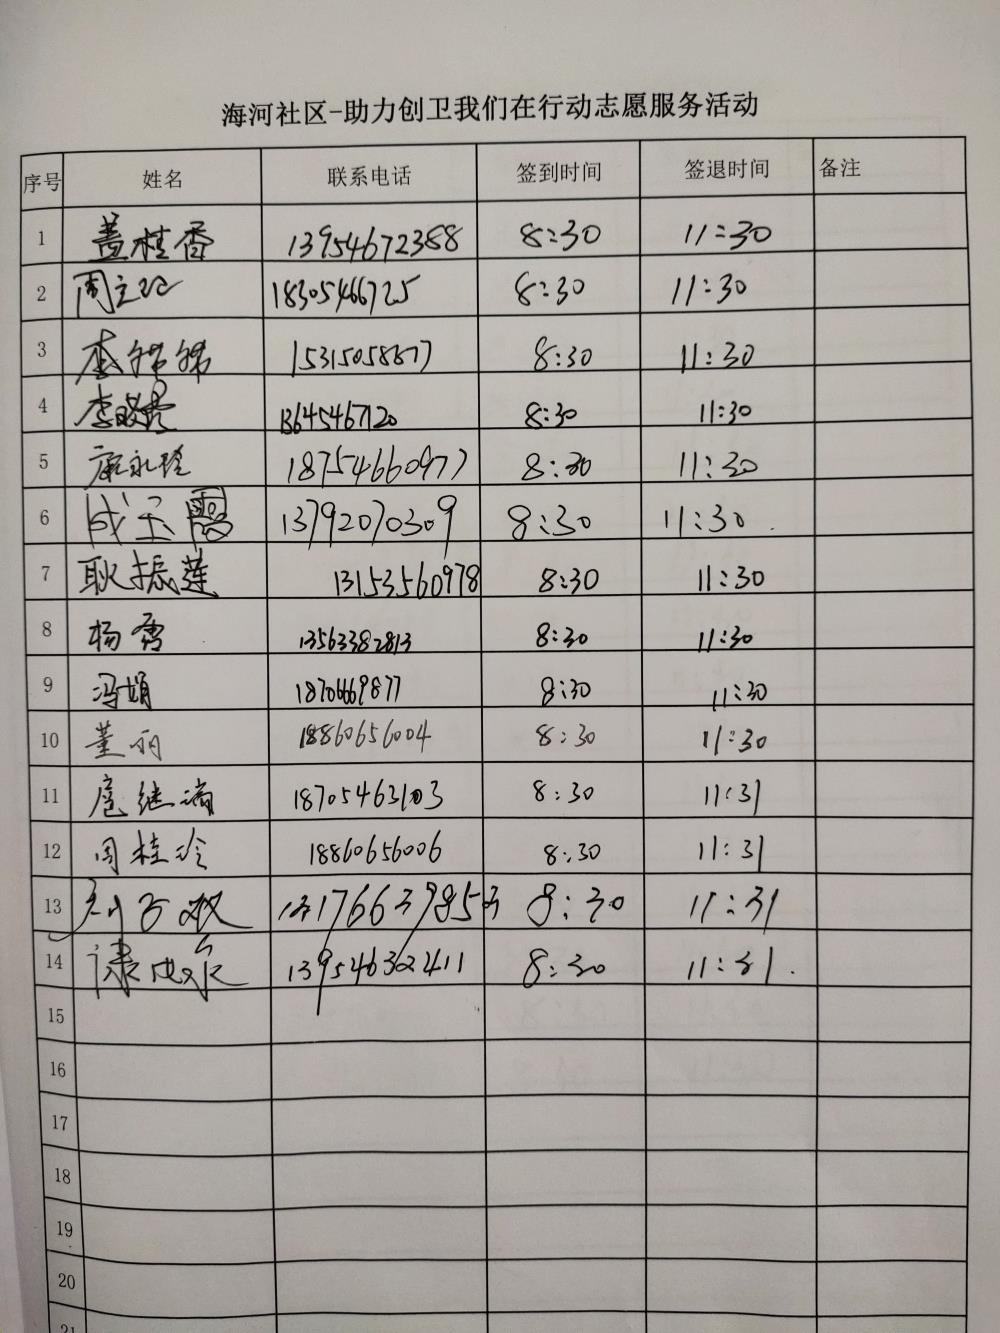 海河社区-助力创卫我们在行动志愿服务活动
序号 姓名 联系电话 签到时间 签退时间 备注
1 盖桂香 13954672388 8:30 11:30
2 周立 18305466725 8:30 11:30
3 李 15315058877 8:30 11:30
4 李晓霞 13645467120 8:30 11:30
5 康永玲 18754660977 8:30 11:30
6 成玉霞 13792070309 8:30 11:30.
7 耿振莲 13153560978 8:30 11:30
8 杨秀 13563382813 8:30 11:30
9 冯娟 18706669877 8:30 11:30
10 董丽 18860656004 8:30 11:30
11 扈继涛 18705463103 8:30 11:31
12 周桂玲 18860656006 8:30 11:31
13 8:30 11:31
14 13954632411 8:30 11:31.
15
16
17
18
19
20
21